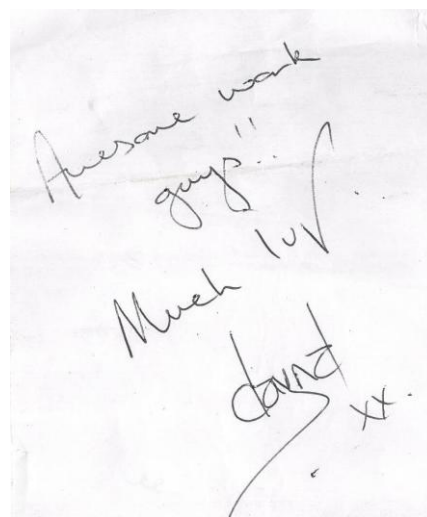 Awesome work
guys!!
Much luv
david
xx.